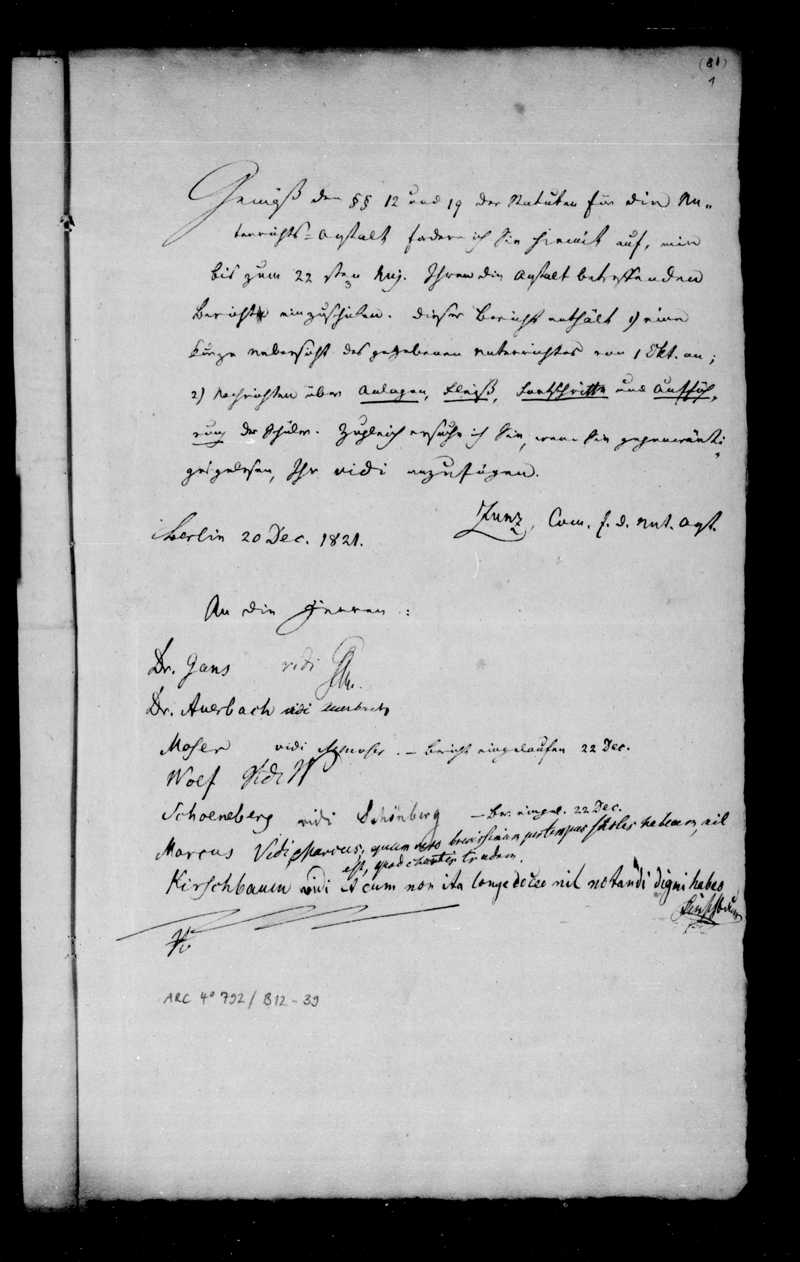 (81)
1
Gemäß den §§ 12 und 19 der Statuten für die Un-
terrichts-Anstalt fordere ich Sie hiemit auf, mir
bis zum 22 sten Ihren die Anstalt betreffenden
Bericht einzuschicken. Dieser Bericht enthält 1) eine
kurze Uebersicht des gegebenen Unterrichtes von 1 Okt. an;
2) Nachrichten über Anlagen, Fleiß, Fortschritte und Auffüh-
rung der Schüler. Zugleich ersuche ich Sie, wenn Sie gegenwärti-
ges gelesen, Ihr vidi anzufügen.
Zunz, Com. f. d. Unt. Anst.
Berlin 20 Dec. 1821.
An die Herren:
Dr. Gans vidi
Dr. Auerbach vidi Auerbach
Moser vidi Moser. – Bericht eingelaufen 22 Dec.
Wolf Vidi W
Schoeneberg vidi Schönberg – Ber. eingel. 22 Dec.
Marcus Vidi Marcus, quum vero brevissimum per tempus habeam, nil
est, quod chartis tradam.
Kirschbaum vidi & cum non ita longe doceo nil notandi digni habeo
Kirschbaum
ARC 4° 792 / B12 - 39